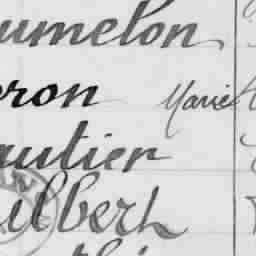 umelon
eron Marie
autier
ilbert